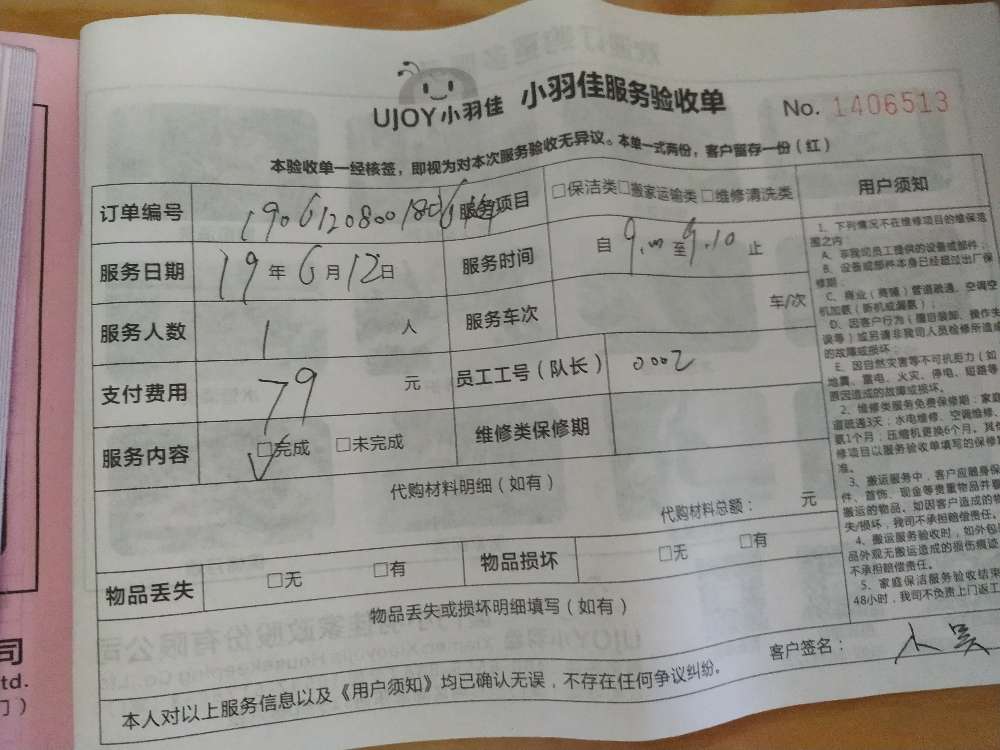 UJOY小羽佳 小羽佳服务验收单 No. 1406513
本验收单一经核签，即视为对本次服务验收无异议。本单一式两份，客户留存一份（红）
订单编号 服务项目 □保洁类□搬家运输类□维修清洗类 用户须知
服务日期 19年6月12日 服务时间 自 9.00 至 9.10 止
服务人数 1 人 服务车次 车/次
支付费用 79 元 员工工号（队长） 0002
服务内容 □完成 □未完成 维修类保修期
代购材料明细（如有）
代购材料总额： 元
物品丢失 □无 □有 物品损坏 □无 □有
物品丢失或损坏明细填写（如有）
客户签名： 小吴
本人对以上服务信息以及《用户须知》均已确认无误，不存在任何争议纠纷。
1、下列情况不在维修项目的维保范
围之内：
A、非我司员工提供的设备或部件；
B、设备或部件本身已经超过出厂保
修期；
C、商业（商铺）管道疏通、空调空
机加氨（新机或漏氨）；
D、因客户行为（擅自装卸、操作失
误等）或另请非我司人员检修所造成
的故障或损坏；
E、因自然灾害等不可机拒力（如
地震、雷电、火灾、停电、短路等
原因造成的故障或损坏。
2、维修类服务免费保修期：家庭
道疏通3天；水电维修、空调维修、
氨1个月；压缩机更换6个月。其
修项目以服务验收单填写的保修
准。
3、搬运服务中，客户应随身保
件、首饰、现金等贵重物品并
搬运的物品。如因客户造成的物
失/损坏，我司不承担赔偿责任。
4、搬运服务验收时，如外包
品外观无搬运造成的损伤痕迹
不承担赔偿责任。
5、家庭保洁服务验收结束
48小时，我司不负责上门返工
司
td.
门）